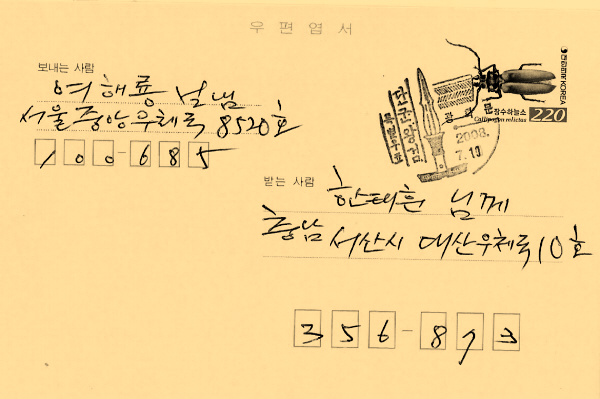 우편엽서
보내는 사람
여해룡 보냄
서울 중앙우체국 8520호
100-685
대한민국 KOREA
장수하늘소
Callipogon relictus
220
단군왕검
광화문
2008.
7.10
받는 사람
한태훈 님께
충남 서산시 대산우체국 10호
356-873